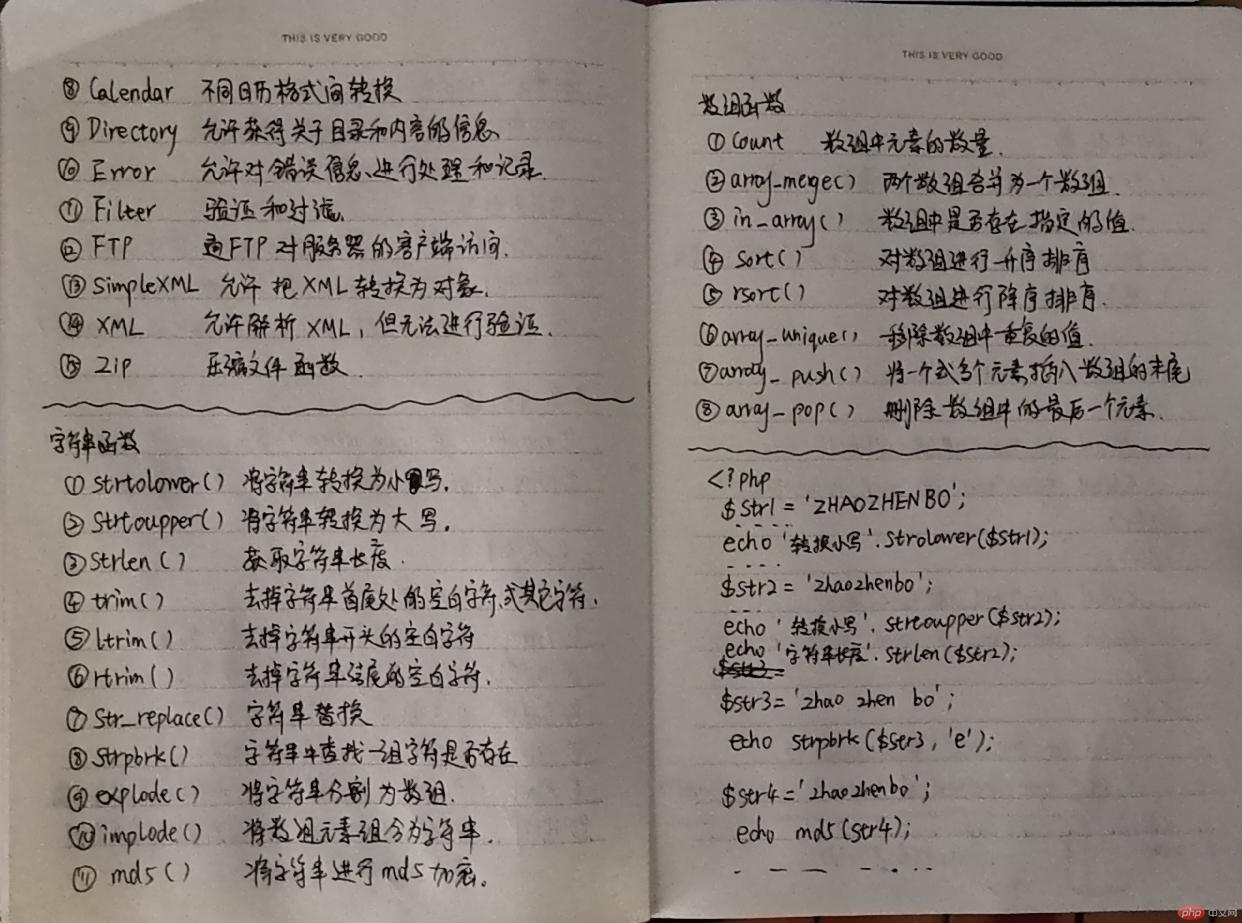 THIS IS VERY GOOD
⑧ Calendar 不同日历格式间转换
⑨ Directory 允许获得关于目录和内容的信息
⑩ Error 允许对错误信息进行处理和记录.
⑪ Filter 验证和过滤.
⑫ FTP 通FTP对服务器的客户端访问.
⑬ SimpleXML 允许把XML转换为对象.
⑭ XML 允许解析XML,但无法进行验证.
⑮ Zip 压缩文件函数.
字符串函数
① strtolower() 将字符串转换为小写.
② strtoupper() 将字符串转换为大写.
③ strlen() 获取字符串长度.
④ trim() 去掉字符串首尾处的空白字符,或其它字符.
⑤ ltrim() 去掉字符串开头的空白字符
⑥ rtrim() 去掉字符串结尾的空白字符.
⑦ str_replace() 字符串替换
⑧ strpbrk() 字符串中查找一组字符是否存在
⑨ explode() 将字符串分割为数组.
⑩ implode() 将数组元素组合为字符串.
⑪ md5() 将字符串进行md5加密.
THIS IS VERY GOOD
数组函数
① count 数组中元素的数量.
② array_merge() 两个数组合并为一个数组.
③ in_array() 数组中是否存在指定的值.
④ sort() 对数组进行升序排序
⑤ rsort() 对数组进行降序排序.
⑥ array_unique() 移除数组中重复的值.
⑦ array_push() 将一个或多个元素插入数组的末尾
⑧ array_pop() 删除数组中的最后一个元素.
<?php
$str1 = 'ZHAOZHENBO';
echo '转换小写'.strolower($str1);
$str2 = 'zhaozhenbo';
echo '转换小写'.strtoupper($str2);
echo '字符串长度'.strlen($str2);
$str3 = 'zhao zhen bo';
echo strpbrk($str3, 'e');
$str4 = 'zhaozhenbo';
echo md5(str4);
php 中文网